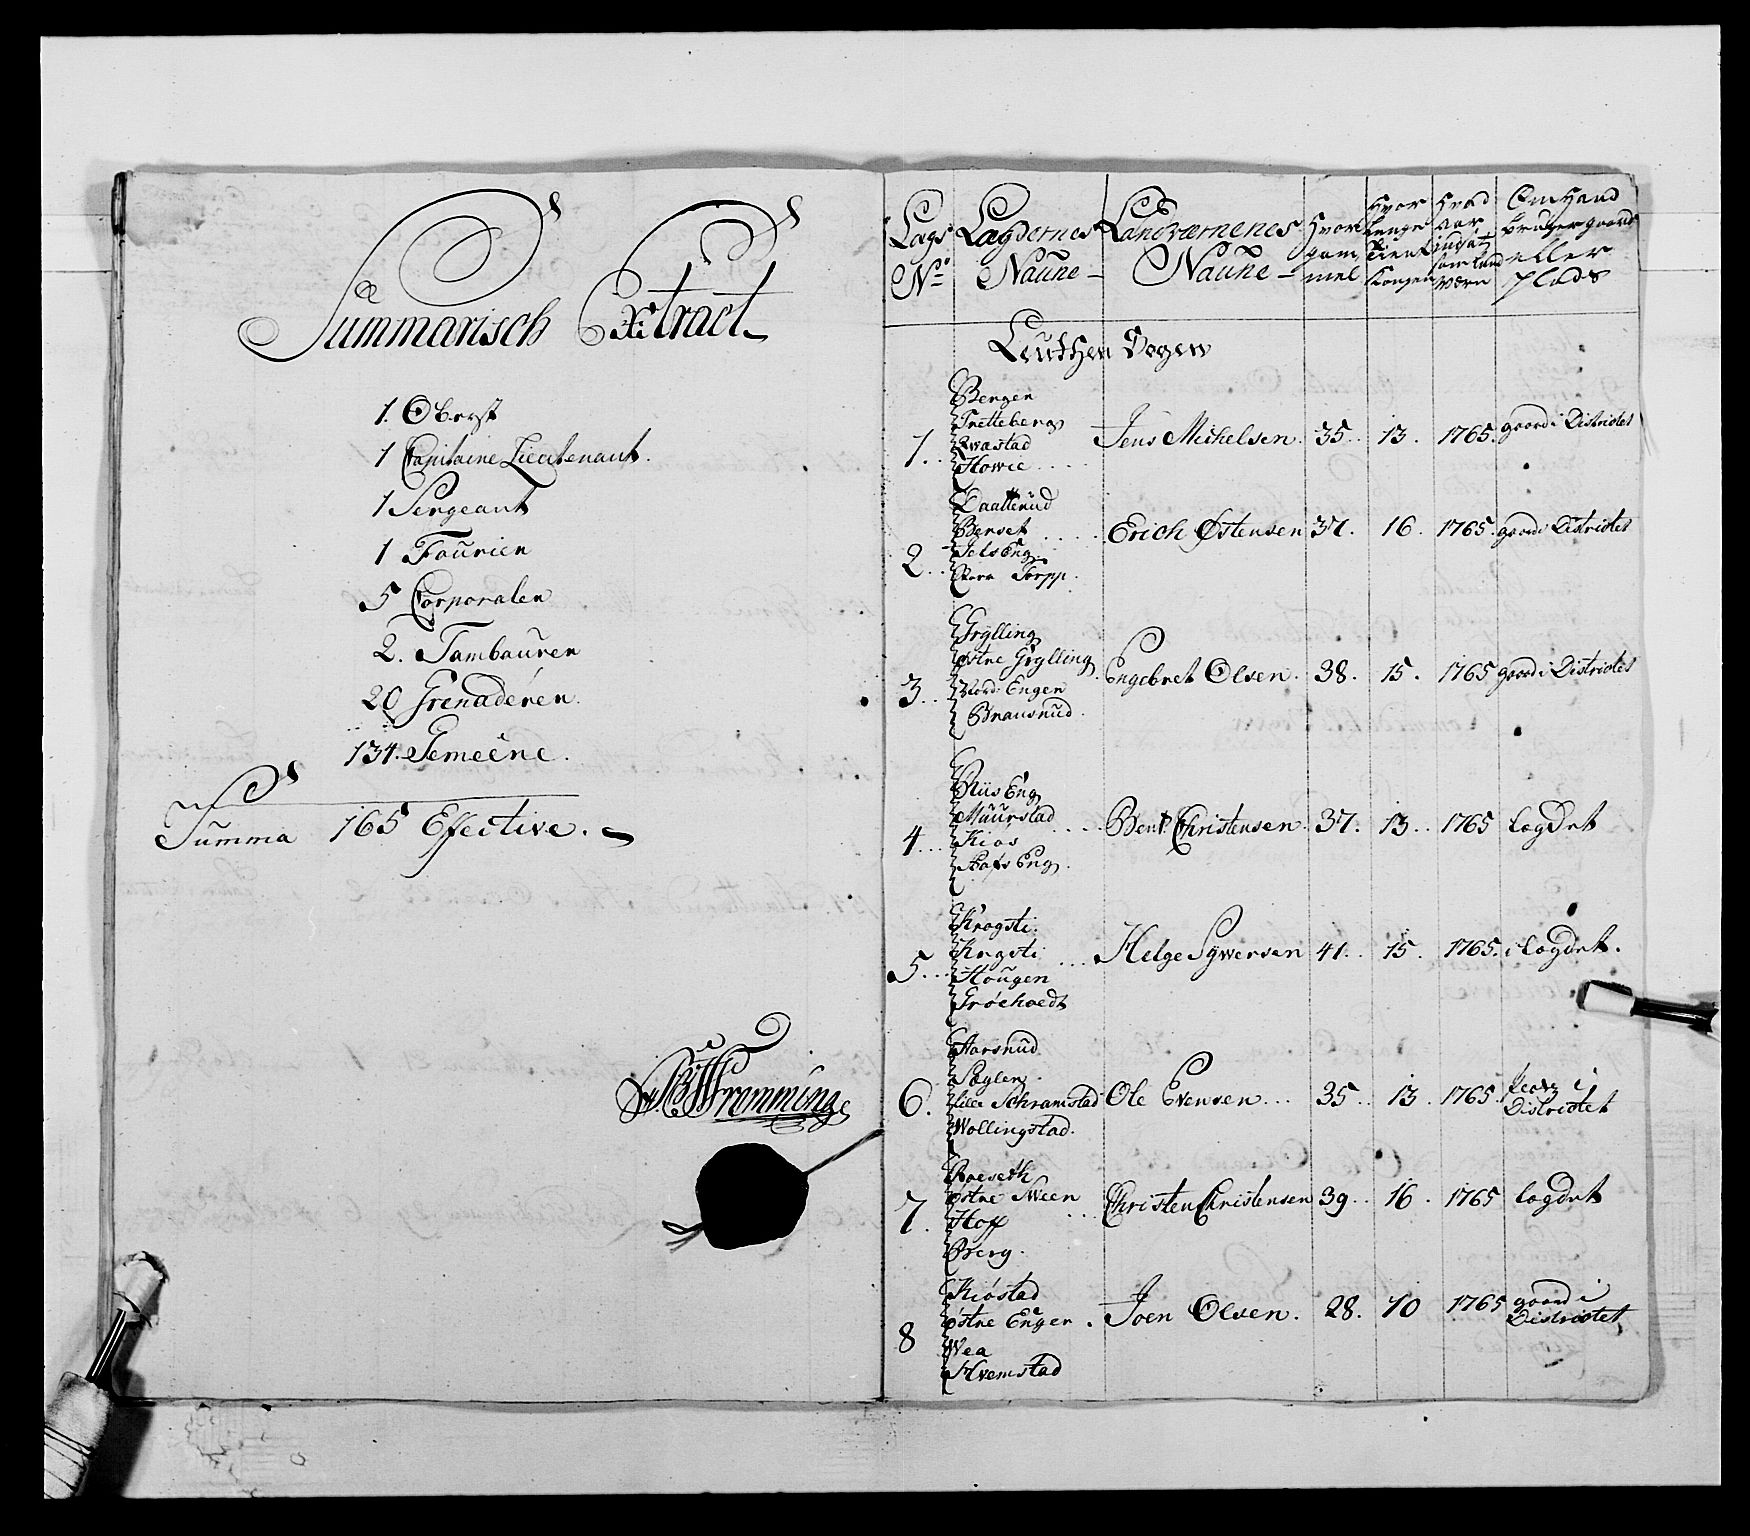 Summarisch Extract
1. Oberst
1 Capitaine Lieutenant.
1 Sergeant
1 Fourier
5 Corporalen
2. Tambouren
20 Grenaderen.
134. Gemeene.
Summa 165 Effective.
Lægs No. Lægdernes Naune Landværnenes Naune Hvor gammel Hvor lenge tient Kongen Hvad aar indsat som Land Værn Om Hand bruger gaard eller Plads
Leuthen Vogen
1. Bergen
Tretteberg
Qvastad
Howie
Jens Michelsen. 35. 13. 1765. gaard i Districtet
2. Daatterud
Berset
Jels Eng
Torpp.
Erich Østensen 37. 16. 1765. gaard i Districtet
3. Grylling
østre Grylling
Nord Enger
Brausnud.
Engebret Olsen. 38. 15. 1765 gaard i Districtet
4. Riis Eng
Muurstad
Kios
Eng.
Bent Christensen. 37. 13. 1765 lægdet
5. Krogsti.
Krogsti
Hougen
Grøehoedt
Helge Sywersen 41. 15. 1765. i lægdet.
6. Aarsnud
Søglen.
lille Schramstad
Wollingstad.
Ole Evensen 35. 13. 1765. Pladz i Districtet
7. Roeseth
østre Sween
Hoff
Berg.
Christen Christensen 39. 16. 1765 lægdet
8 Kiøstad
østre Enger
Vea
Hvemstad
Joen Olsen. 28. 10 1765 gaard i Districtet